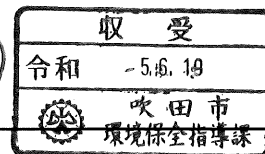 収受
令和 -5.6.19
吹田市
環境保全指導課